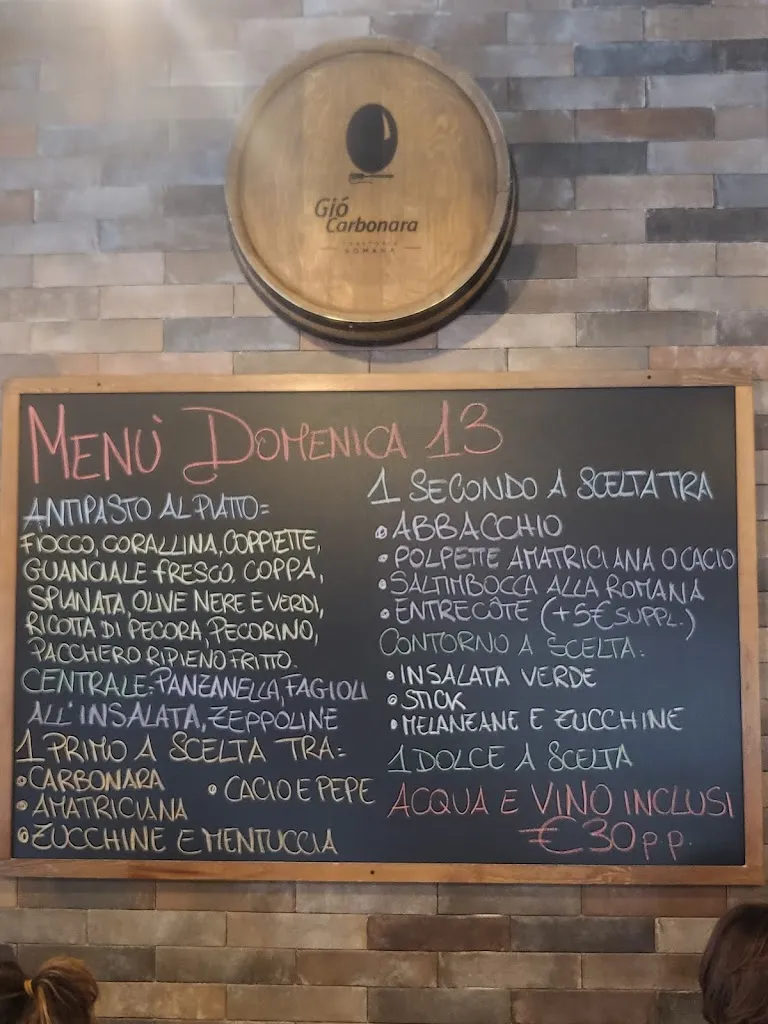 Gió
Carbonara
TRATTORIA
ROMANA
MENÙ DOMENICA 13
ANTIPASTO AL PIATTO=
FIOCCO, CORALLINA, COPPIETTE,
GUANCIALE FRESCO, COPPA,
SPIANATA, OLIVE NERE E VERDI,
RICOTTA DI PECORA, PECORINO,
PACCHERO RIPIENO FRITTO.
CENTRALE: PANZANELLA, FAGIOLI
ALL'INSALATA, ZEPPOLINE
1 PRIMO A SCELTA TRA:
• CARBONARA • CACIO E PEPE
• AMATRICIANA
• ZUCCHINE E MENTUCCIA
1 SECONDO A SCELTA TRA
• ABBACCHIO
• POLPETTE AMATRICIANA O CACIO
• SALTIMBOCCA ALLA ROMANA
• ENTRECÔTE (+5€ SUPPL.)
CONTORNO A SCELTA:
• INSALATA VERDE
• STICK
• MELANZANE E ZUCCHINE
1 DOLCE A SCELTA
ACQUA E VINO INCLUSI
€30 p.p.